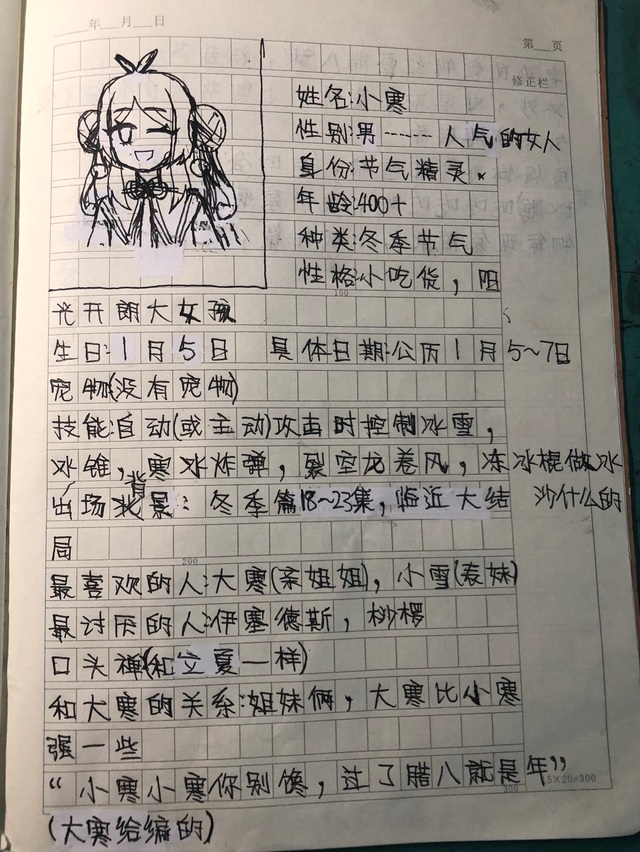 年 月 日
第 页
修正栏
姓名:小寒
性别:男……人气的女人
身份:节气精灵.
年龄:400+
种类:冬季节气
性格:小吃货,阳
100
光开朗大女孩
生日:1月5日 具体日期:公历1月5~7日
宠物(没有宠物)
技能:自动(或主动)攻击时控制冰雪,
冰锥,寒冰炸弹,裂空龙卷风,冻冰棍做冰
沙什么的
出场背景:冬季篇18~23集,临近大结
局
200
最喜欢的人:大寒(亲姐姐),小雪(表妹)
最讨厌的人:伊塞德斯,桫椤
口头禅(和立夏一样)
和大寒的关系:姐妹俩,大寒比小寒
强一些
“小寒小寒你别馋,过了腊八就是年”
300
15×20=300
(大寒给编的)